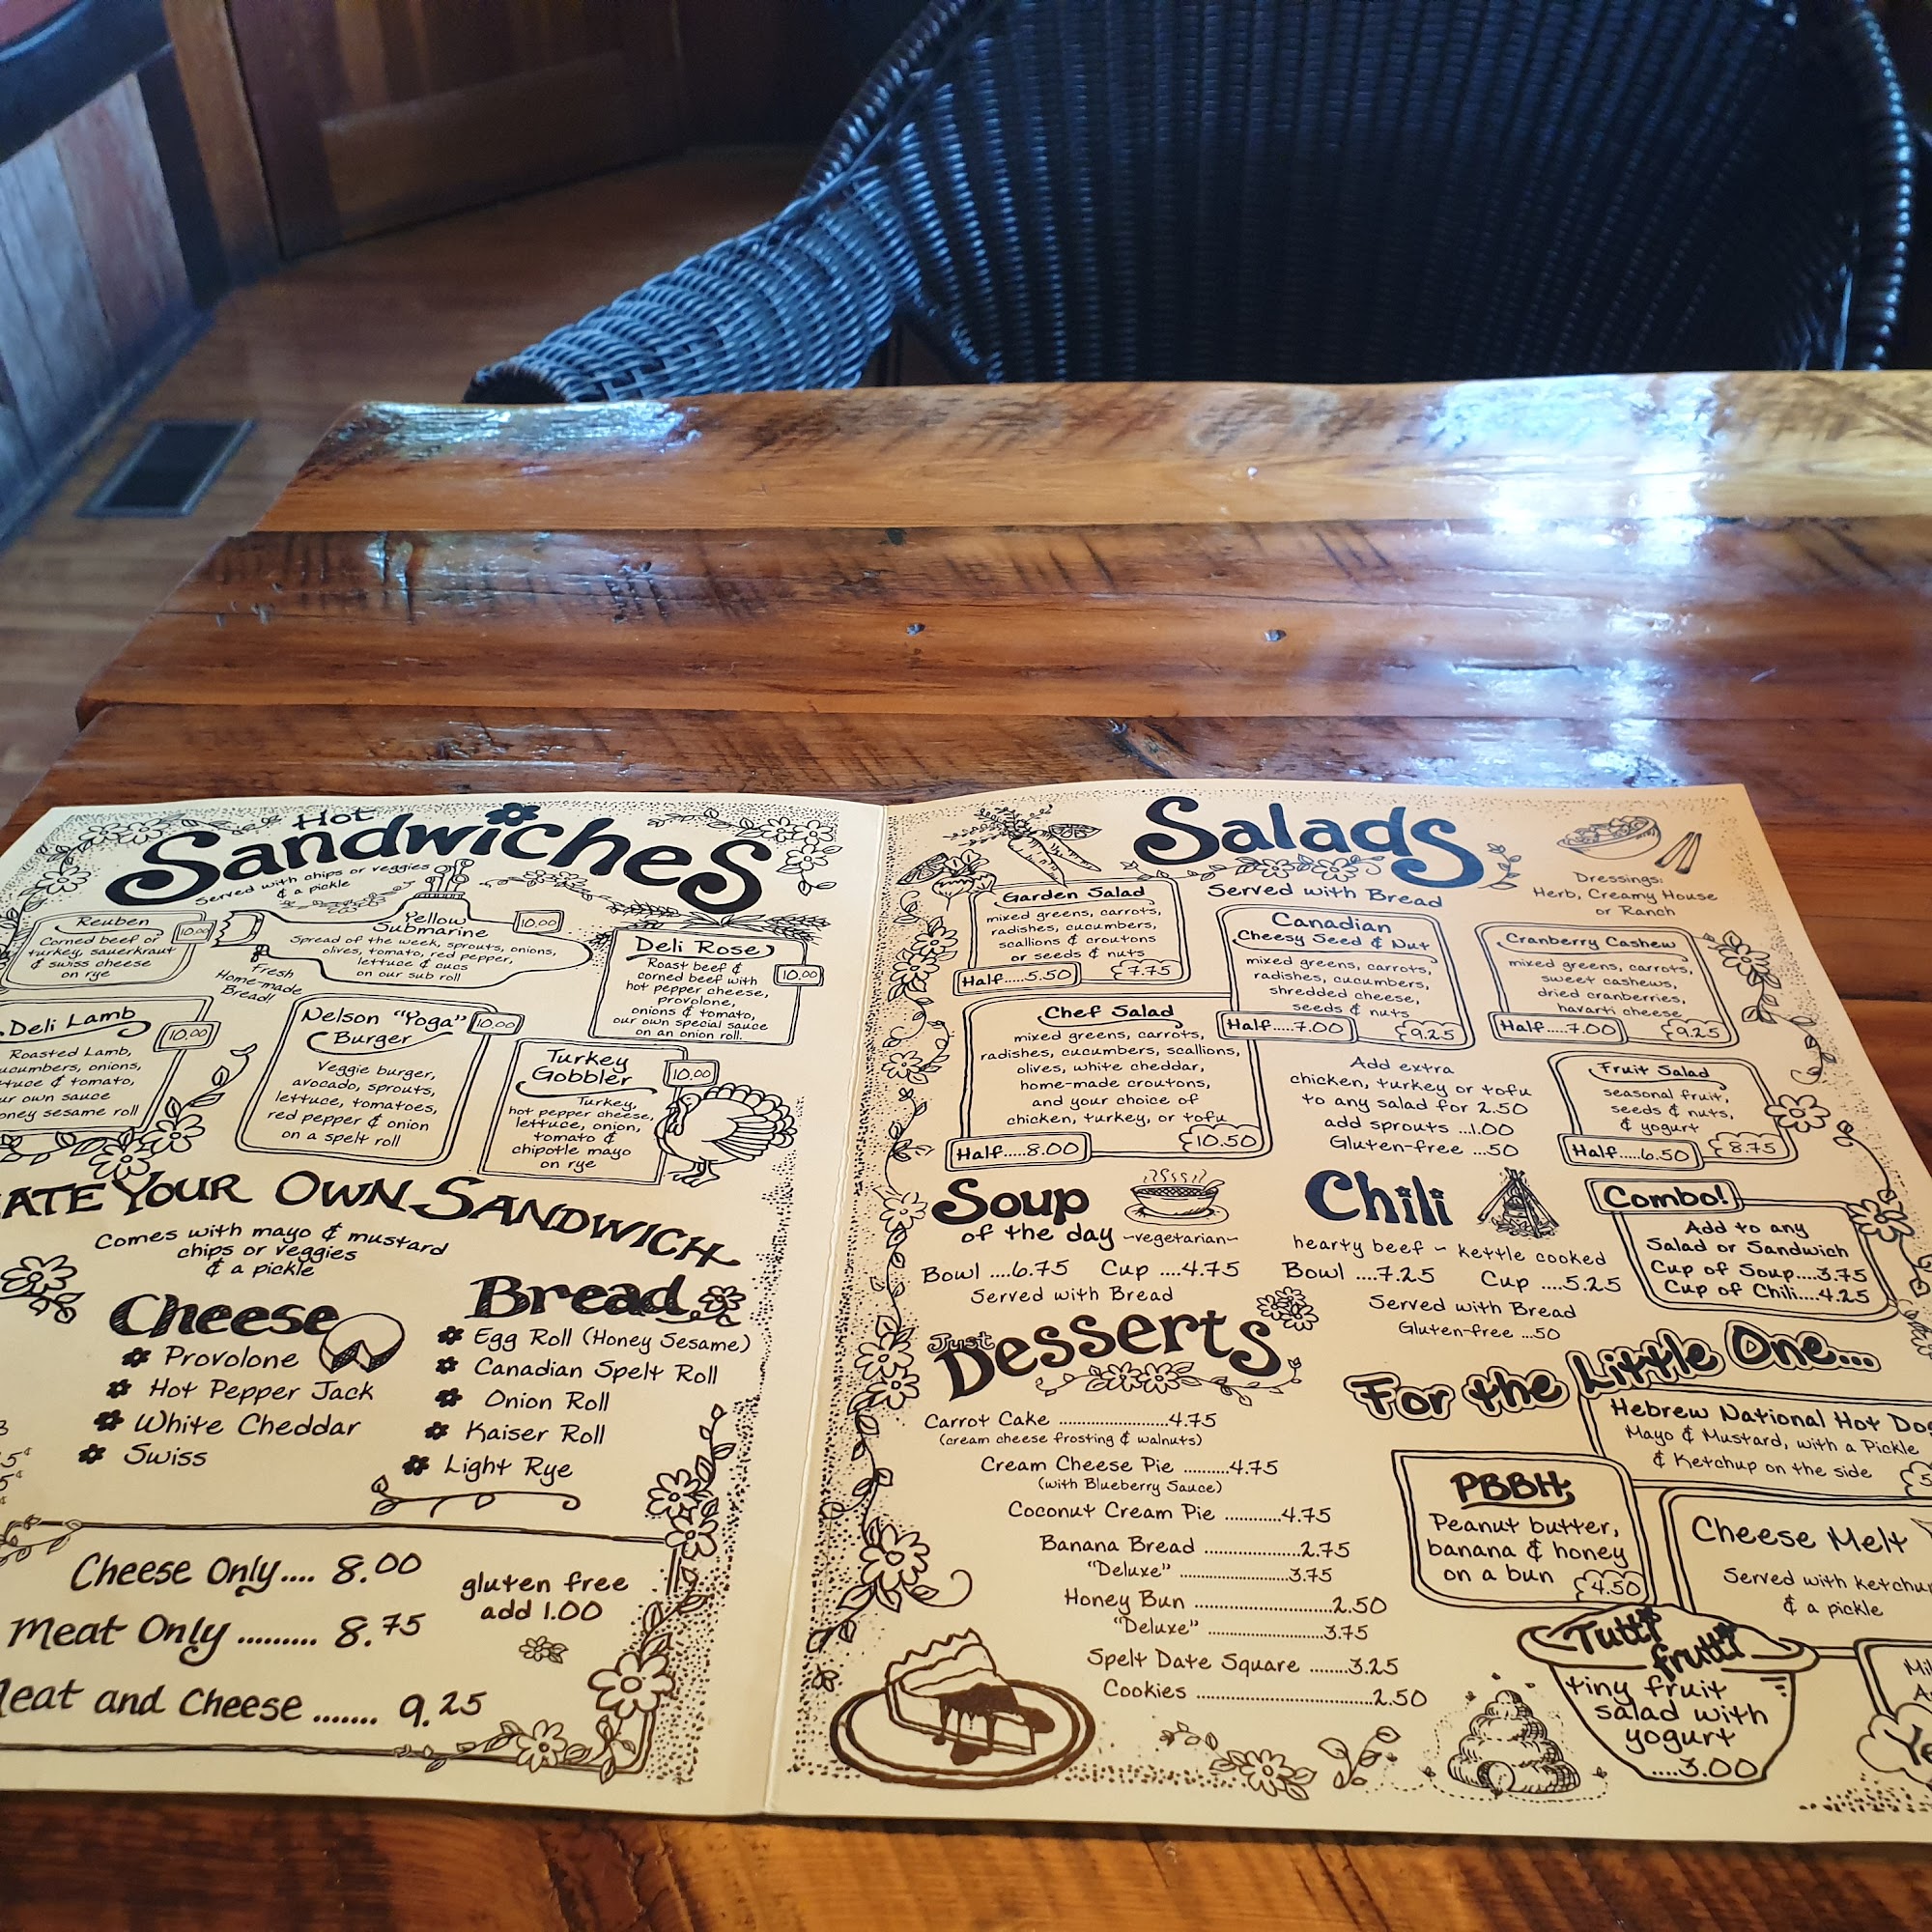 Hot
Sandwiches
Served with chips or veggies
& a pickle
Reuben
10.00
Corned beef or
turkey, sauerkraut
& swiss cheese
on rye
Yellow
Submarine
10.00
Spread of the week, sprouts, onions,
olives, tomato, red pepper,
lettuce & cucs
on our sub roll
Fresh
Home-made
Bread!
Deli Rose
10.00
Roast beef &
corned beef with
hot pepper cheese,
provolone,
onions & tomato,
our own special sauce
on an onion roll.
Deli Lamb
10.00
Roasted Lamb,
onions,
& tomato,
own sauce
sesame roll
Nelson "Yoga"
Burger
10.00
Veggie burger,
avocado, sprouts,
lettuce, tomatoes,
red pepper & onion
on a spelt roll
Turkey
Gobbler
10.00
Turkey,
hot pepper cheese,
lettuce, onion,
tomato &
chipotle mayo
on rye
YOUR OWN SANDWICH
Comes with mayo & mustard
chips or veggies
& a pickle
Cheese
Provolone
Hot Pepper Jack
White Cheddar
Swiss
Bread
Egg Roll (Honey Sesame)
Canadian Spelt Roll
Onion Roll
Kaiser Roll
Light Rye
Cheese Only.... 8.00
Meat Only ......... 8.75
and Cheese ....... 9.25
gluten free
add 1.00
Salads
Served with Bread
Dressings:
Herb, Creamy House
or Ranch
Garden Salad
mixed greens, carrots,
radishes, cucumbers,
scallions & croutons
or seeds & nuts
Half....5.50 7.75
Canadian
Cheesy Seed & Nut
mixed greens, carrots,
radishes, cucumbers,
shredded cheese,
seeds & nuts
Half....7.00 9.25
Cranberry Cashew
mixed greens, carrots,
sweet cashews,
dried cranberries,
havarti cheese
Half....7.00 9.25
Chef Salad
mixed greens, carrots,
radishes, cucumbers, scallions,
olives, white cheddar,
home-made croutons,
and your choice of
chicken, turkey, or tofu
Half.....8.00 10.50
Add extra
chicken, turkey or tofu
to any salad for 2.50
add sprouts ...1.00
Gluten-free ...50
Fruit Salad
seasonal fruit,
seeds & nuts,
& yogurt
Half....6.50 8.75
Soup
of the day ~vegetarian~
Bowl ....6.75 Cup ....4.75
Served with Bread
Chili
hearty beef ~ kettle cooked
Bowl ....7.25 Cup ....5.25
Served with Bread
Gluten-free ...50
Combo!
Add to any
Salad or Sandwich
Cup of Soup....3.75
Cup of Chili....4.25
Just
Desserts
Carrot Cake ......................4.75
(cream cheese frosting & walnuts)
Cream Cheese Pie .........4.75
(with Blueberry Sauce)
Coconut Cream Pie ...........4.75
Banana Bread ...................2.75
"Deluxe" .......................3.75
Honey Bun ............................2.50
"Deluxe" ............................3.75
Spelt Date Square ........3.25
Cookies ...................................2.50
For the Little One...
Hebrew National Hot
Mayo & Mustard, with a Pickle
& Ketchup on the side
PBBH
Peanut butter,
banana & honey
on a bun
4.50
Cheese Melt
Served with
& a pickle
Tutti
frutti
tiny fruit
salad with
yogurt
....3.00